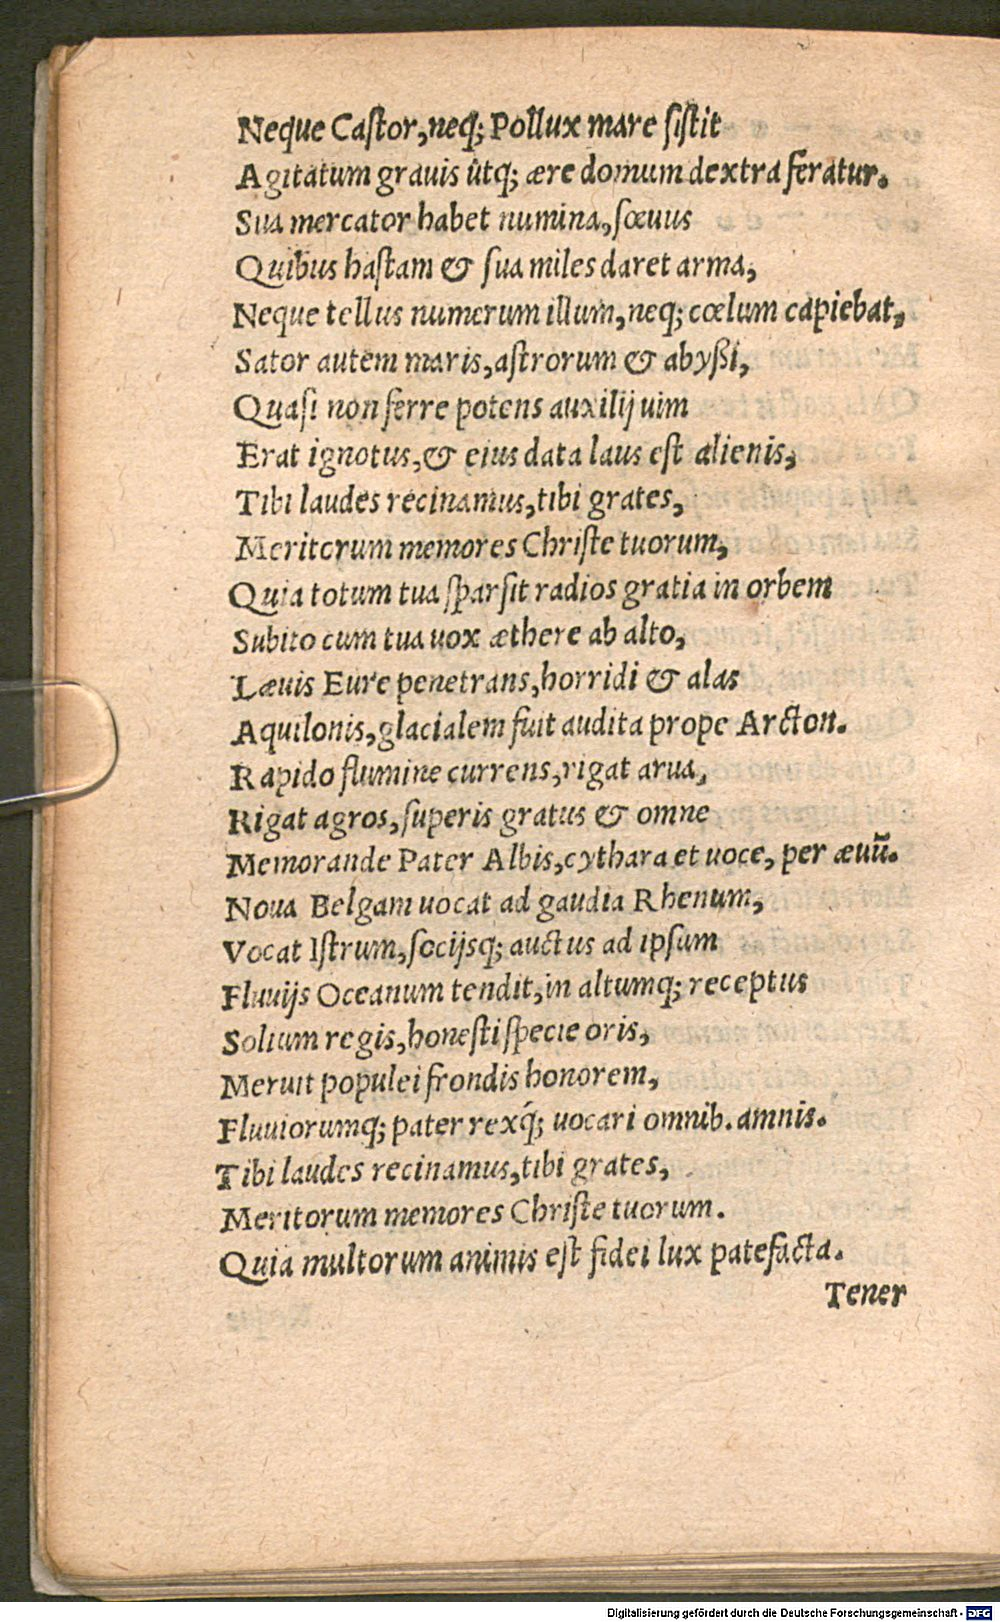 Neque Caſtor, neq; Pollux mare ſiſtit
Agitatum grauis ûtq; ære domum dextra feratur.
Sua mercator habet numina, ſæuus
Quibus haſtam & ſua miles daret arma,
Neque tellus numerum illum, neq; cœlum capiebat,
Sator autem maris, aſtrorum & abyßi,
Quaſi non ferre potens auxilij uim
Erat ignotus, & eius data laus eſt alienis,
Tibi laudes recinamus, tibi grates,
Meritorum memores Chriſte tuorum,
Quia totum tua ſparſit radios gratia in orbem
Subito cum tua uox æthere ab alto,
Læuis Eure penetrans, horridi & alas
Aquilonis, glacialem fuit audita prope Arcton.
Rapido flumine currens, rigat arua,
Rigat agros, ſuperis gratus & omne
Memorande Pater Albis, cythara et uoce, per æuũ.
Noua Belgam uocat ad gaudia Rhenum,
Vocat Iſtrum, ſocijsq; auctus ad ipſum
Fluuijs Oceanum tendit, in altumq; receptus
Solium regis, honeſti ſpecie oris,
Meruit populei frondis honorem,
Fluuiorumq; pater rexq́; uocari omnib. amnis.
Tibi laudes recinamus, tibi grates,
Meritorum memores Chriſte tuorum.
Quia multorum animis eſt fidei lux patefacta.
Tener
Digitalisierung gefördert durch die Deutsche Forschungsgemeinschaft - DFG